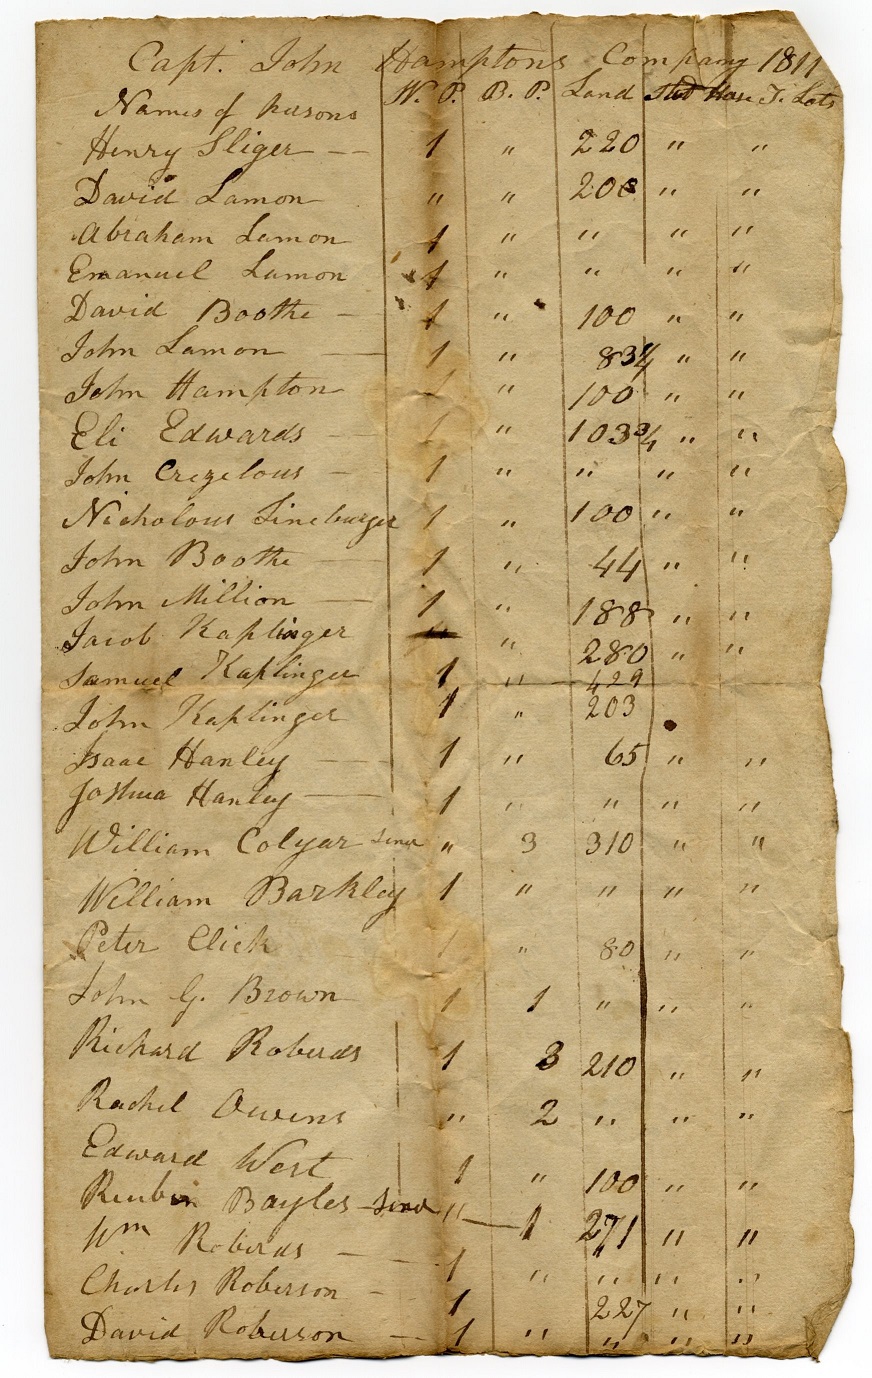 Capt. John Hamptons Company 1811
Names of persons W. P. B. P. Land Stud Horse T. Lots
Henry Sliger — 1 " 220 " "
David Lamon " " 200 " "
Abraham Lamon 1 " " " "
Emanuel Lamon 1 " " " "
David Boothe — 1 " 100 " "
John Lamon — 1 " 83 1/4 " "
John Hampton 1 " 100 " "
Eli Edwards — 1 " 103 3/4 " "
John Crezelous — 1 " " " "
Nicholous Lineburger 1 " 100 " "
John Boothe — 1 " 44 " "
John Million — 1 " 188 " "
Jacob Kaplinger " " 280 " "
Samuel Kaplinger 1 " 429
John Kaplinger 1 " 203
Isaac Hanley — 1 " 65 " "
Joshua Hanley — 1 " " " "
William Colyar Senr " 3 310 " "
William Barkley 1 " " " "
Peter Click 1 " 80 " "
John G. Brown 1 1 " " "
Richard Roberds 1 3 210 " "
Rachel Owens " 2 " " "
Edward West 1 " 100 " "
Reubin Bayles — Senr " — 1 271 " "
Wm Roberds — 1 " " " "
Charles Roberson — 1 227 " "
David Roberson — 1 " " " "